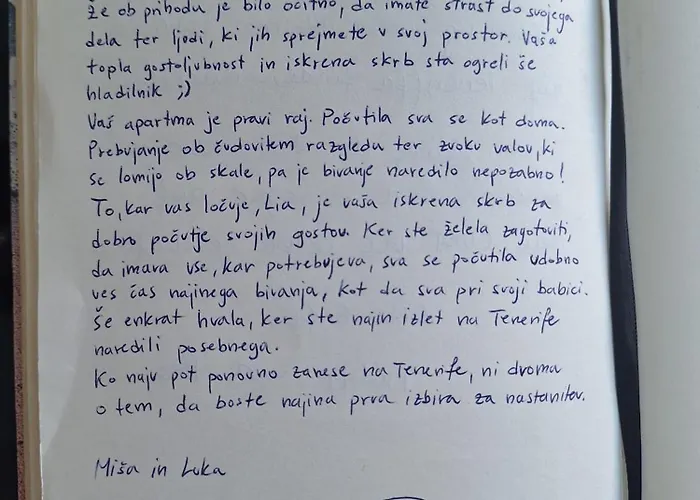 že ob prihodu je bilo očitno, da imate strast do svojega
dela ter ljudi, ki jih sprejmete v svoj prostor. Vaša
topla gostoljubnost in iskrena skrb sta ogreli še
hladilnik ;)
Vaš apartma je pravi raj. Počutila sva se kot doma.
Prebujanje ob čudovitem razgledu ter zvoku valov, ki
se lomijo ob skale, pa je bivanje naredilo nepozabno!
To, kar vas ločuje, Lia, je vaša iskrena skrb za
dobro počutje svojih gostov. Ker ste želela zagotoviti,
da imava vse, kar potrebujeva, sva se počutila udobno
ves čas najinega bivanja, kot da sva pri svoji babici.
Še enkrat hvala, ker ste najin izlet na Tenerife
naredili posebnega.
Ko naju pot ponovno zanese na Tenerife, ni dvoma
o tem, da boste najina prva izbira za nastanitev.
Miša in Luka